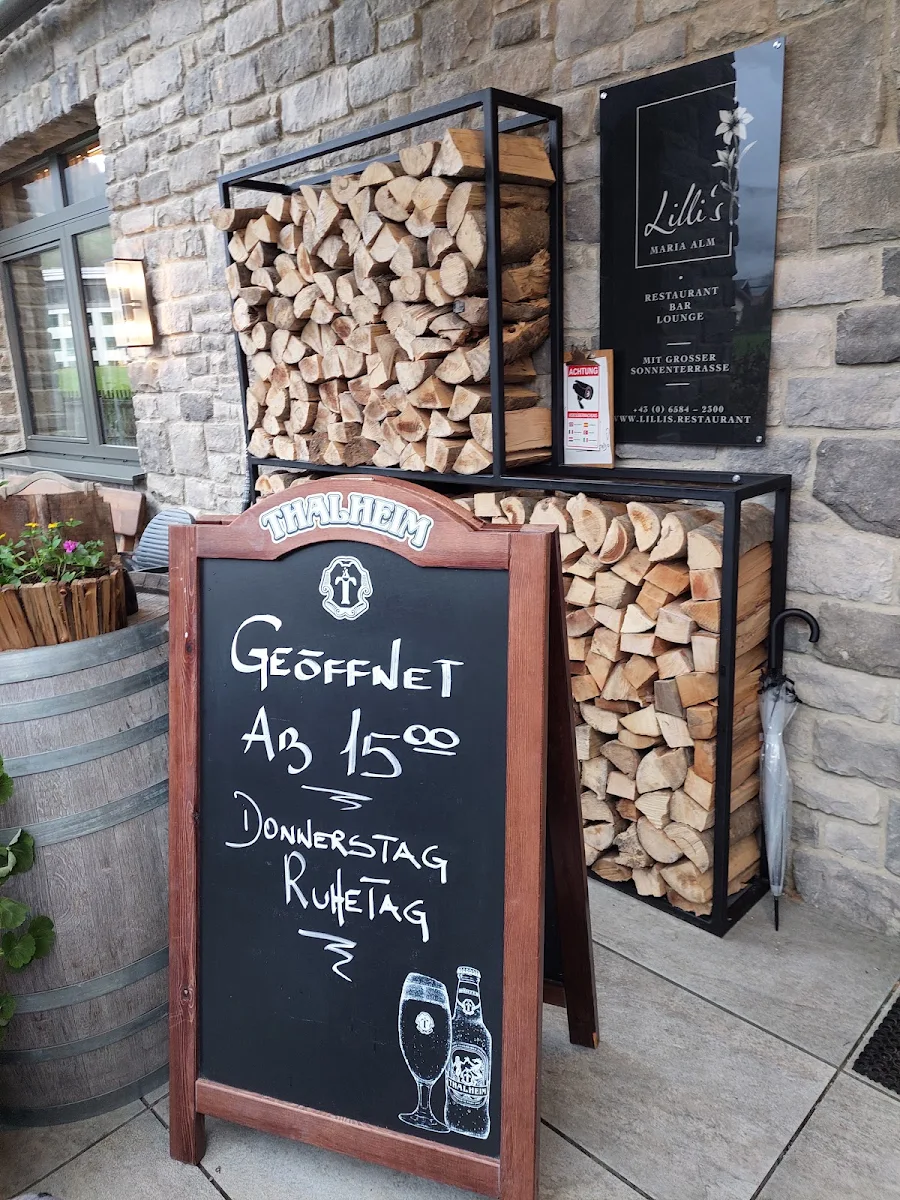 Lilli's
MARIA ALM
RESTAURANT
BAR
LOUNGE
MIT GROSSER
SONNENTERRASSE
+43 (0) 6584 – 2300
WWW.LILLIS.RESTAURANT
ACHTUNG
THALHEIM
T
GEÖFFNET
AB 15⁰⁰
DONNERSTAG
RUHETAG
THALHEIM